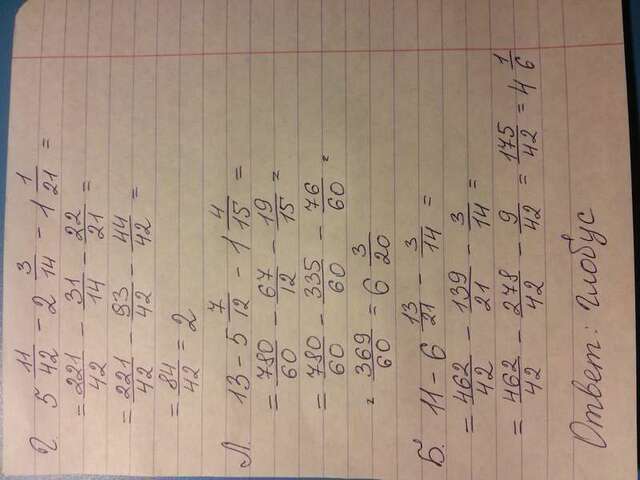 Г. 5 11/42 - 2 3/14 - 1 1/21 =
= 221/42 - 31/14 - 22/21 =
= 221/42 - 93/42 - 44/42 =
= 84/42 = 2
Л. 13 - 5 7/12 - 1 4/15 =
= 780/60 - 67/12 - 19/15 =
= 780/60 - 335/60 - 76/60 =
= 369/60 = 6 3/20
Б. 11 - 6 13/21 - 3/14 =
= 462/42 - 139/21 - 3/14 =
= 462/42 - 278/42 - 9/42 = 175/42 = 4 1/6
Ответ: Глобус